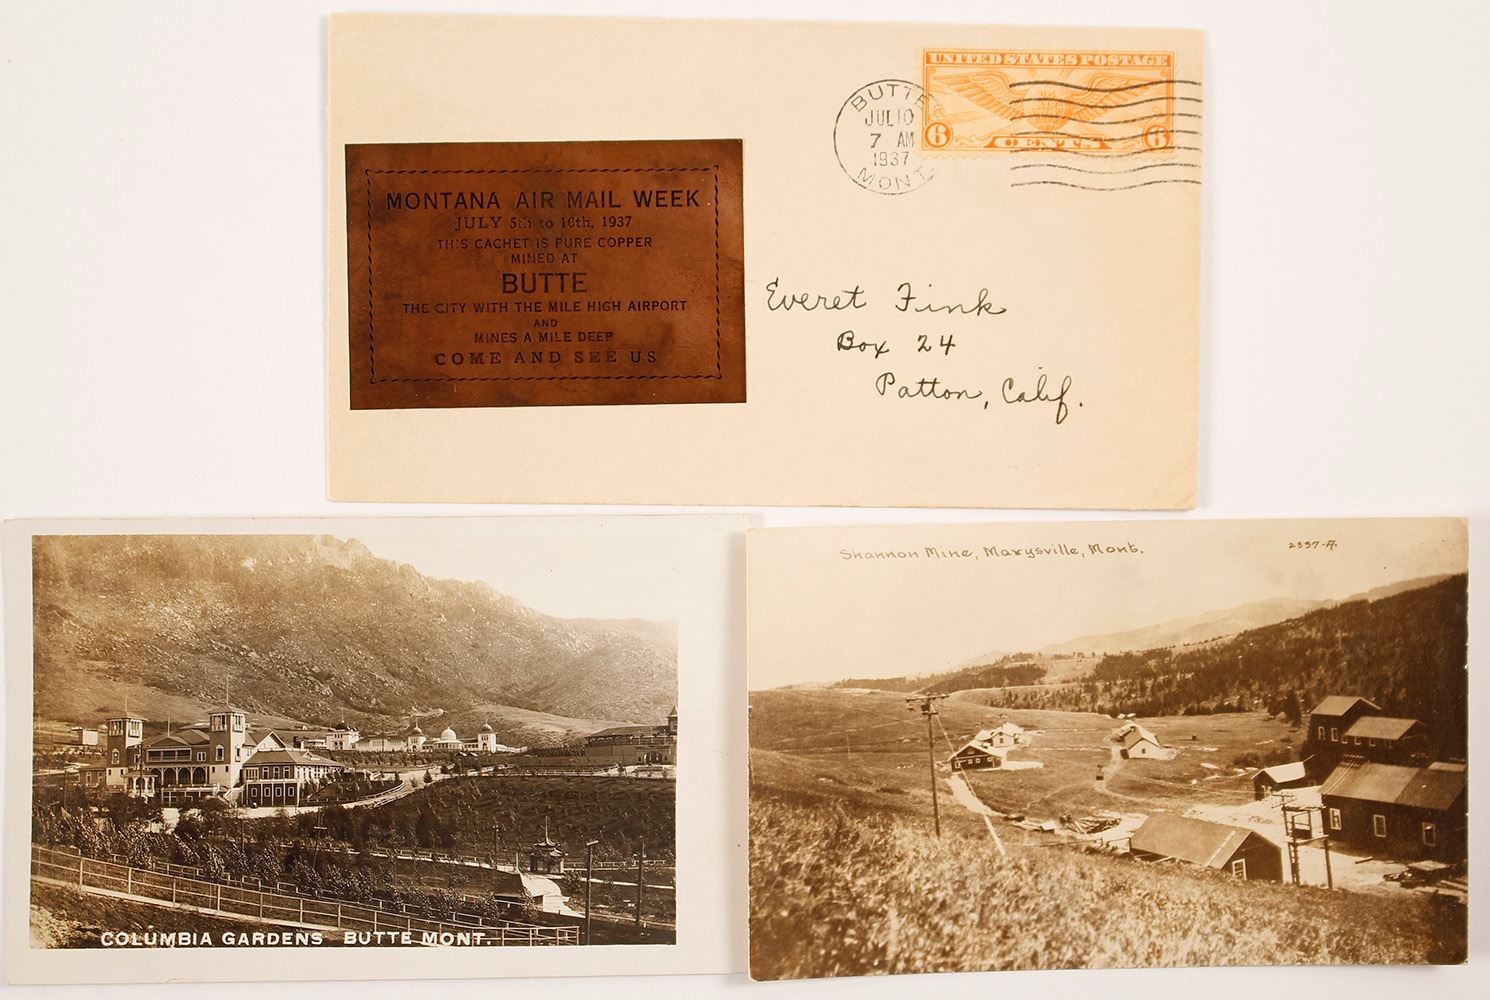 UNITED STATES POSTAGE
6 CENTS 6
BUTTE
JUL 10
7 AM
1937
MONT.
MONTANA AIR MAIL WEEK
JULY 5th to 10th, 1937
THIS CACHET IS PURE COPPER
MINED AT
BUTTE
THE CITY WITH THE MILE HIGH AIRPORT
AND
MINES A MILE DEEP
COME AND SEE US
Everet Fink
Box 24
Patton, Calif.
COLUMBIA GARDENS BUTTE MONT.
Shannon Mine, Marysville, Mont.
2337-A.